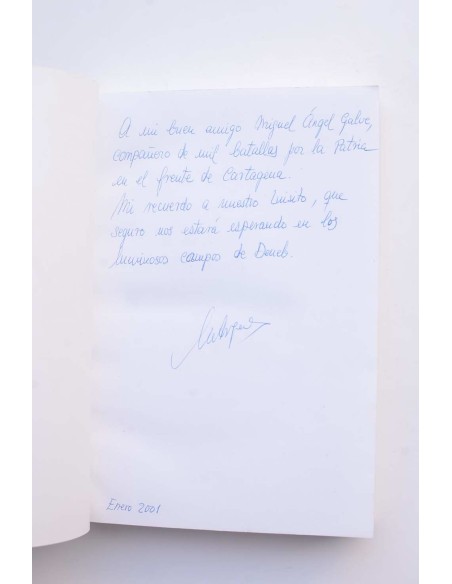 A mi buen amigo Miguel Ángel Galve,
compañero de mil batallas por la Patria
en el frente de Cartagena.
Mi recuerdo a nuestro Luisito, que
seguro nos estará esperando en los
luminosos campos de Deneb.
Enero 2001